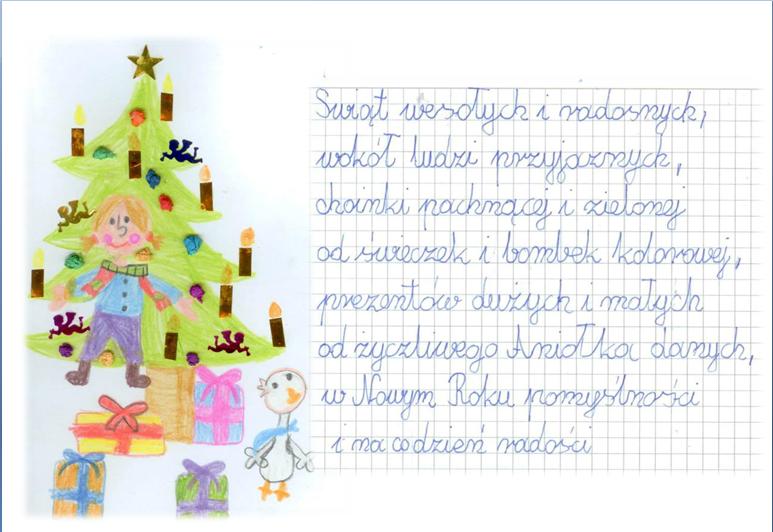 Świąt wesołych i radosnych,
wokół ludzi przyjaznych,
choinki pachnącej i zielonej
od świeczek i bombek kolorowej,
prezentów dużych i małych
od życzliwego Aniołka danych,
w Nowym Roku pomyślności
i na codzień radości